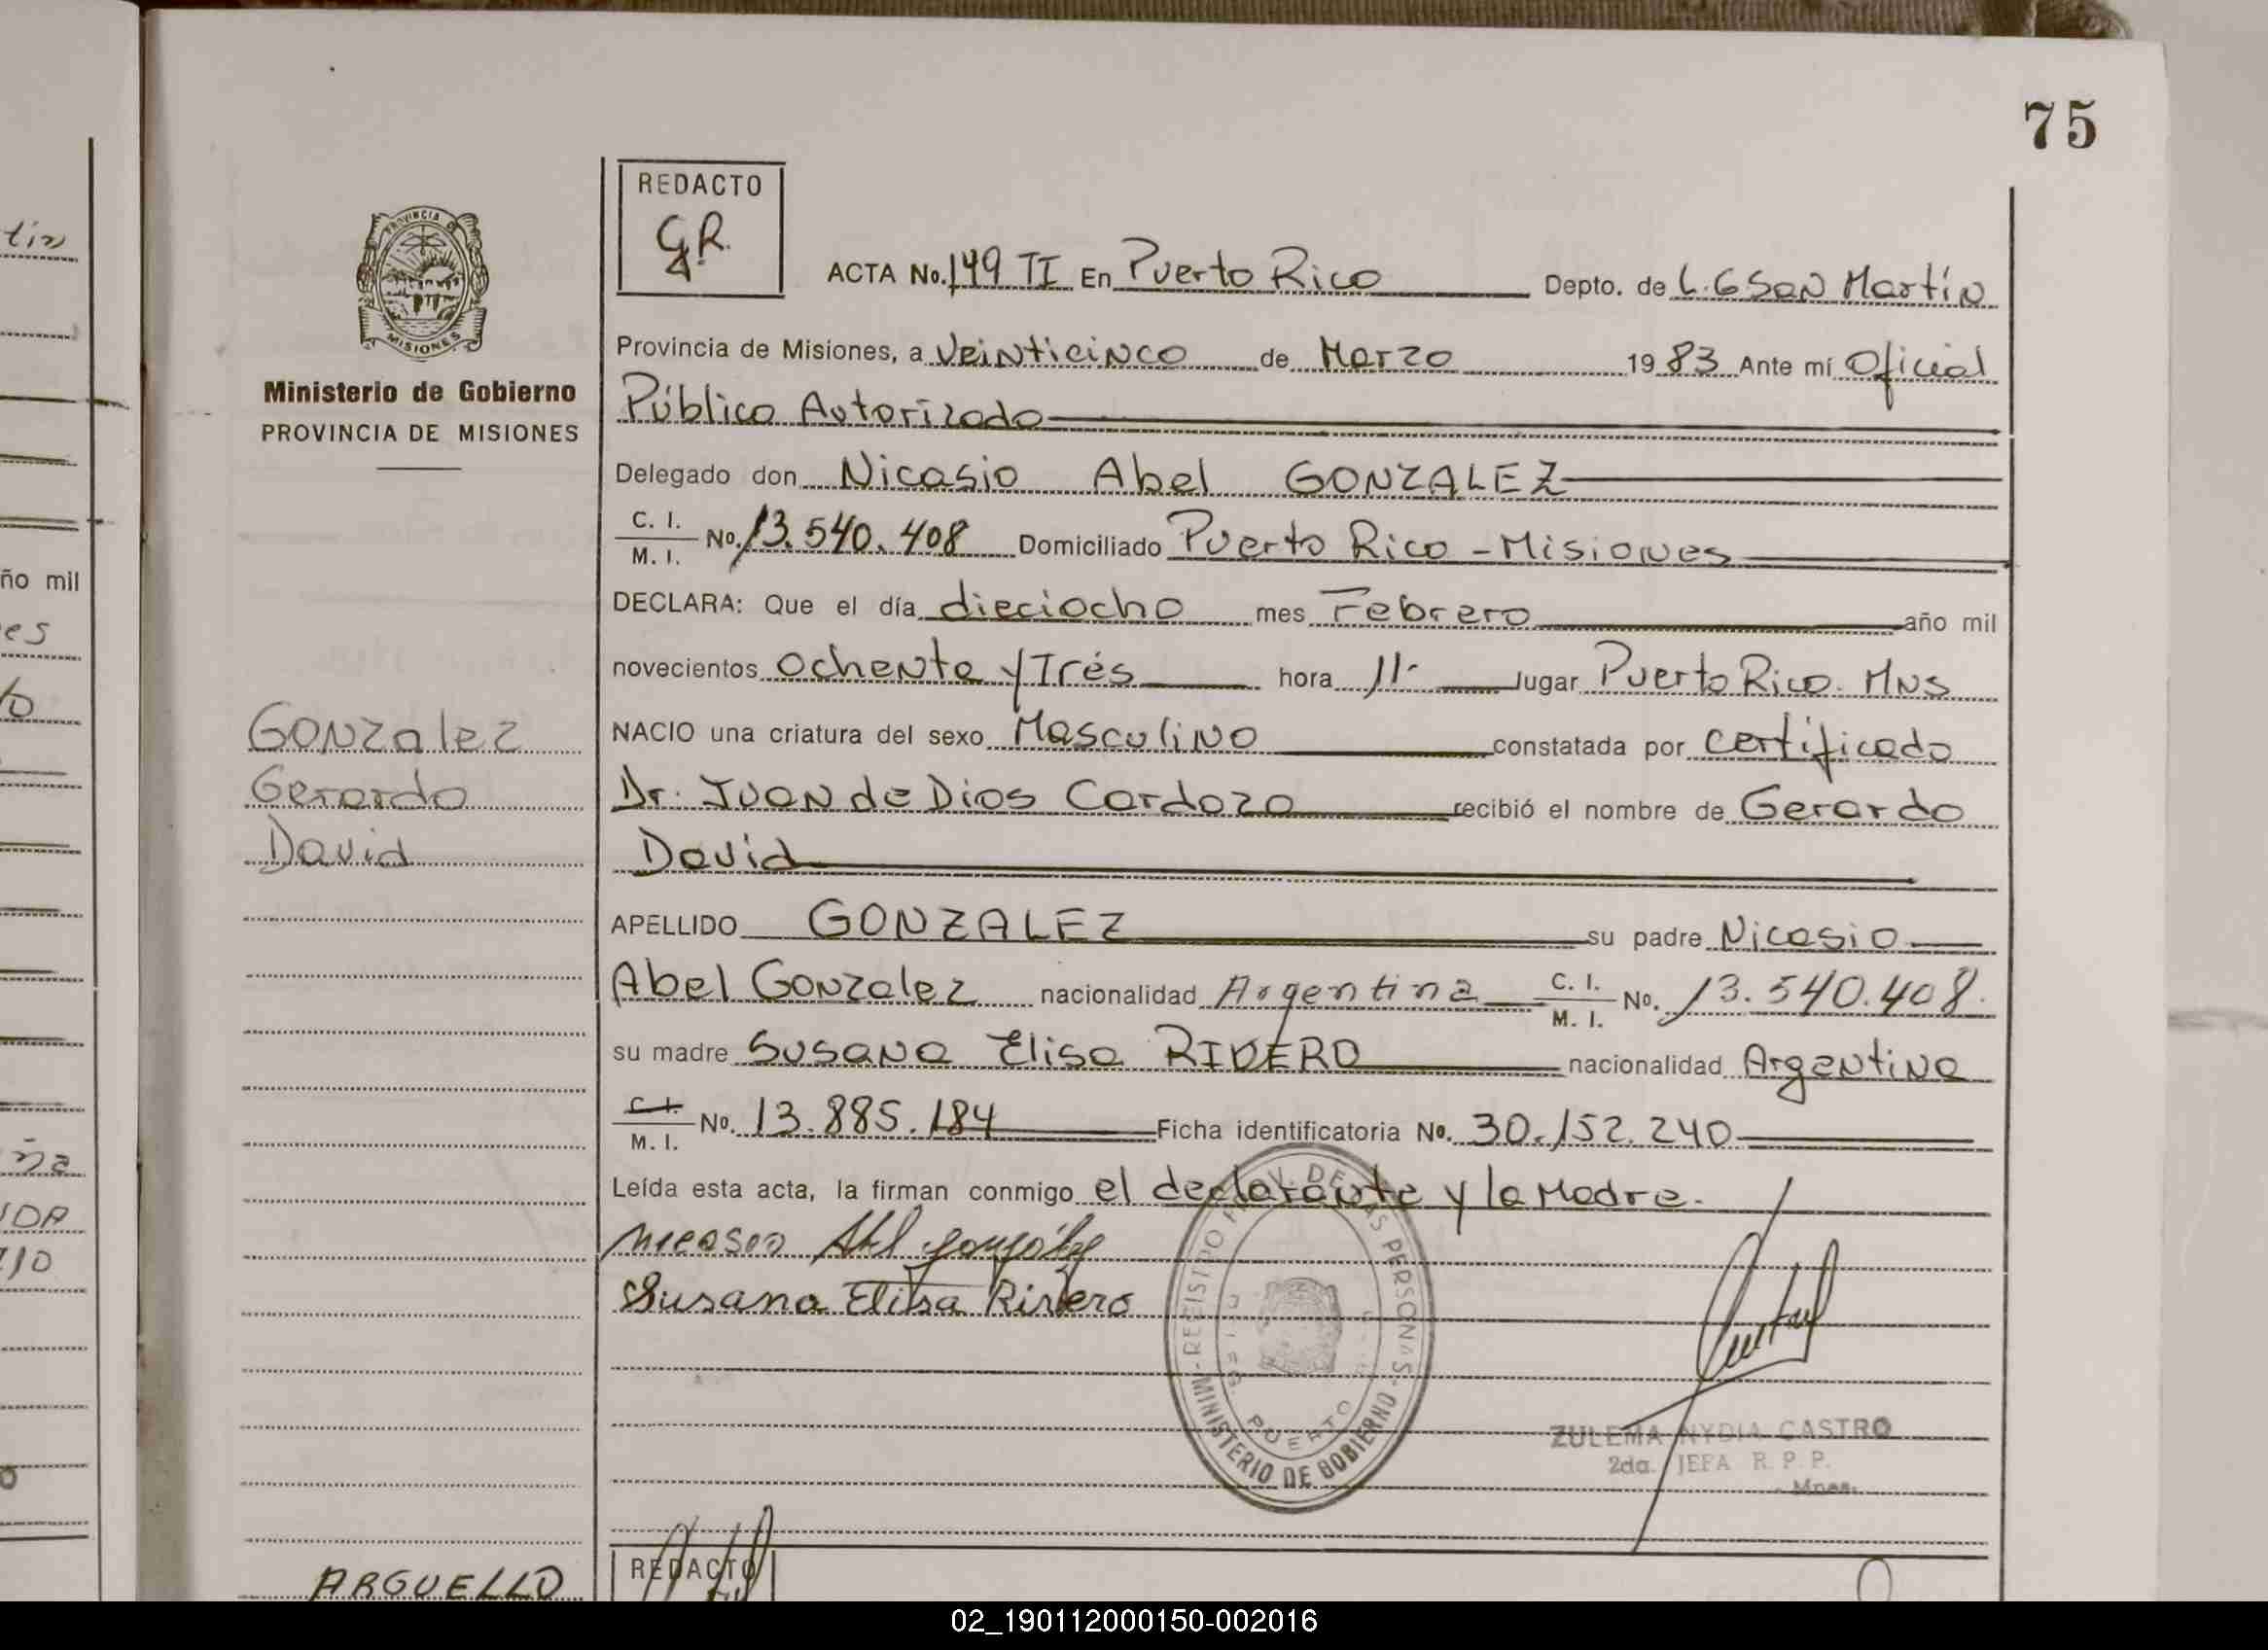 75
tin
REDACTO
G.R.
PROVINCIA D
MISIONES
ACTA No. 149 TI En Puerto Rico Depto. de L.G San Martín
Provincia de Misiones, a veinticinco de Marzo 1983 Ante mí Oficial
Ministerio de Gobierno
Público Autorizado
PROVINCIA DE MISIONES
Delegado don Nicasio Abel GONZALEZ
C. I.
M. I. No. 13.540.408 Domiciliado Puerto Rico - Misiones
ño mil
DECLARA: Que el día dieciocho mes Febrero año mil
es
novecientos ochenta y Trés hora 11- lugar Puerto Rico. Mns
Gonzalez
NACIO una criatura del sexo Masculino constatada por certificado
Gerardo
Dr. Juan de Dios Cardozo recibió el nombre de Gerardo
David
David
APELLIDO GONZALEZ su padre Nicasio
Abel Gonzalez nacionalidad Argentina C. I. M. I. No. 13.540.408.
su madre Susana Elisa RIVERO nacionalidad Argentina
C. I.
M. I. No. 13.885.184 Ficha identificatoria No. 30.152.240
Leída esta acta, la firman conmigo el declarante y la Madre.
Nicasio Abel González
Susana Elisa Rivero
REGISTRO PROV. DE LAS PERSONAS
MINISTERIO DE GOBIERNO
PUERTO
ZULEMA NYDIA CASTRO
2da. JEFA R. P. P.
Mnes.
ARGUELLO
REDACTO
02_190112000150-002016